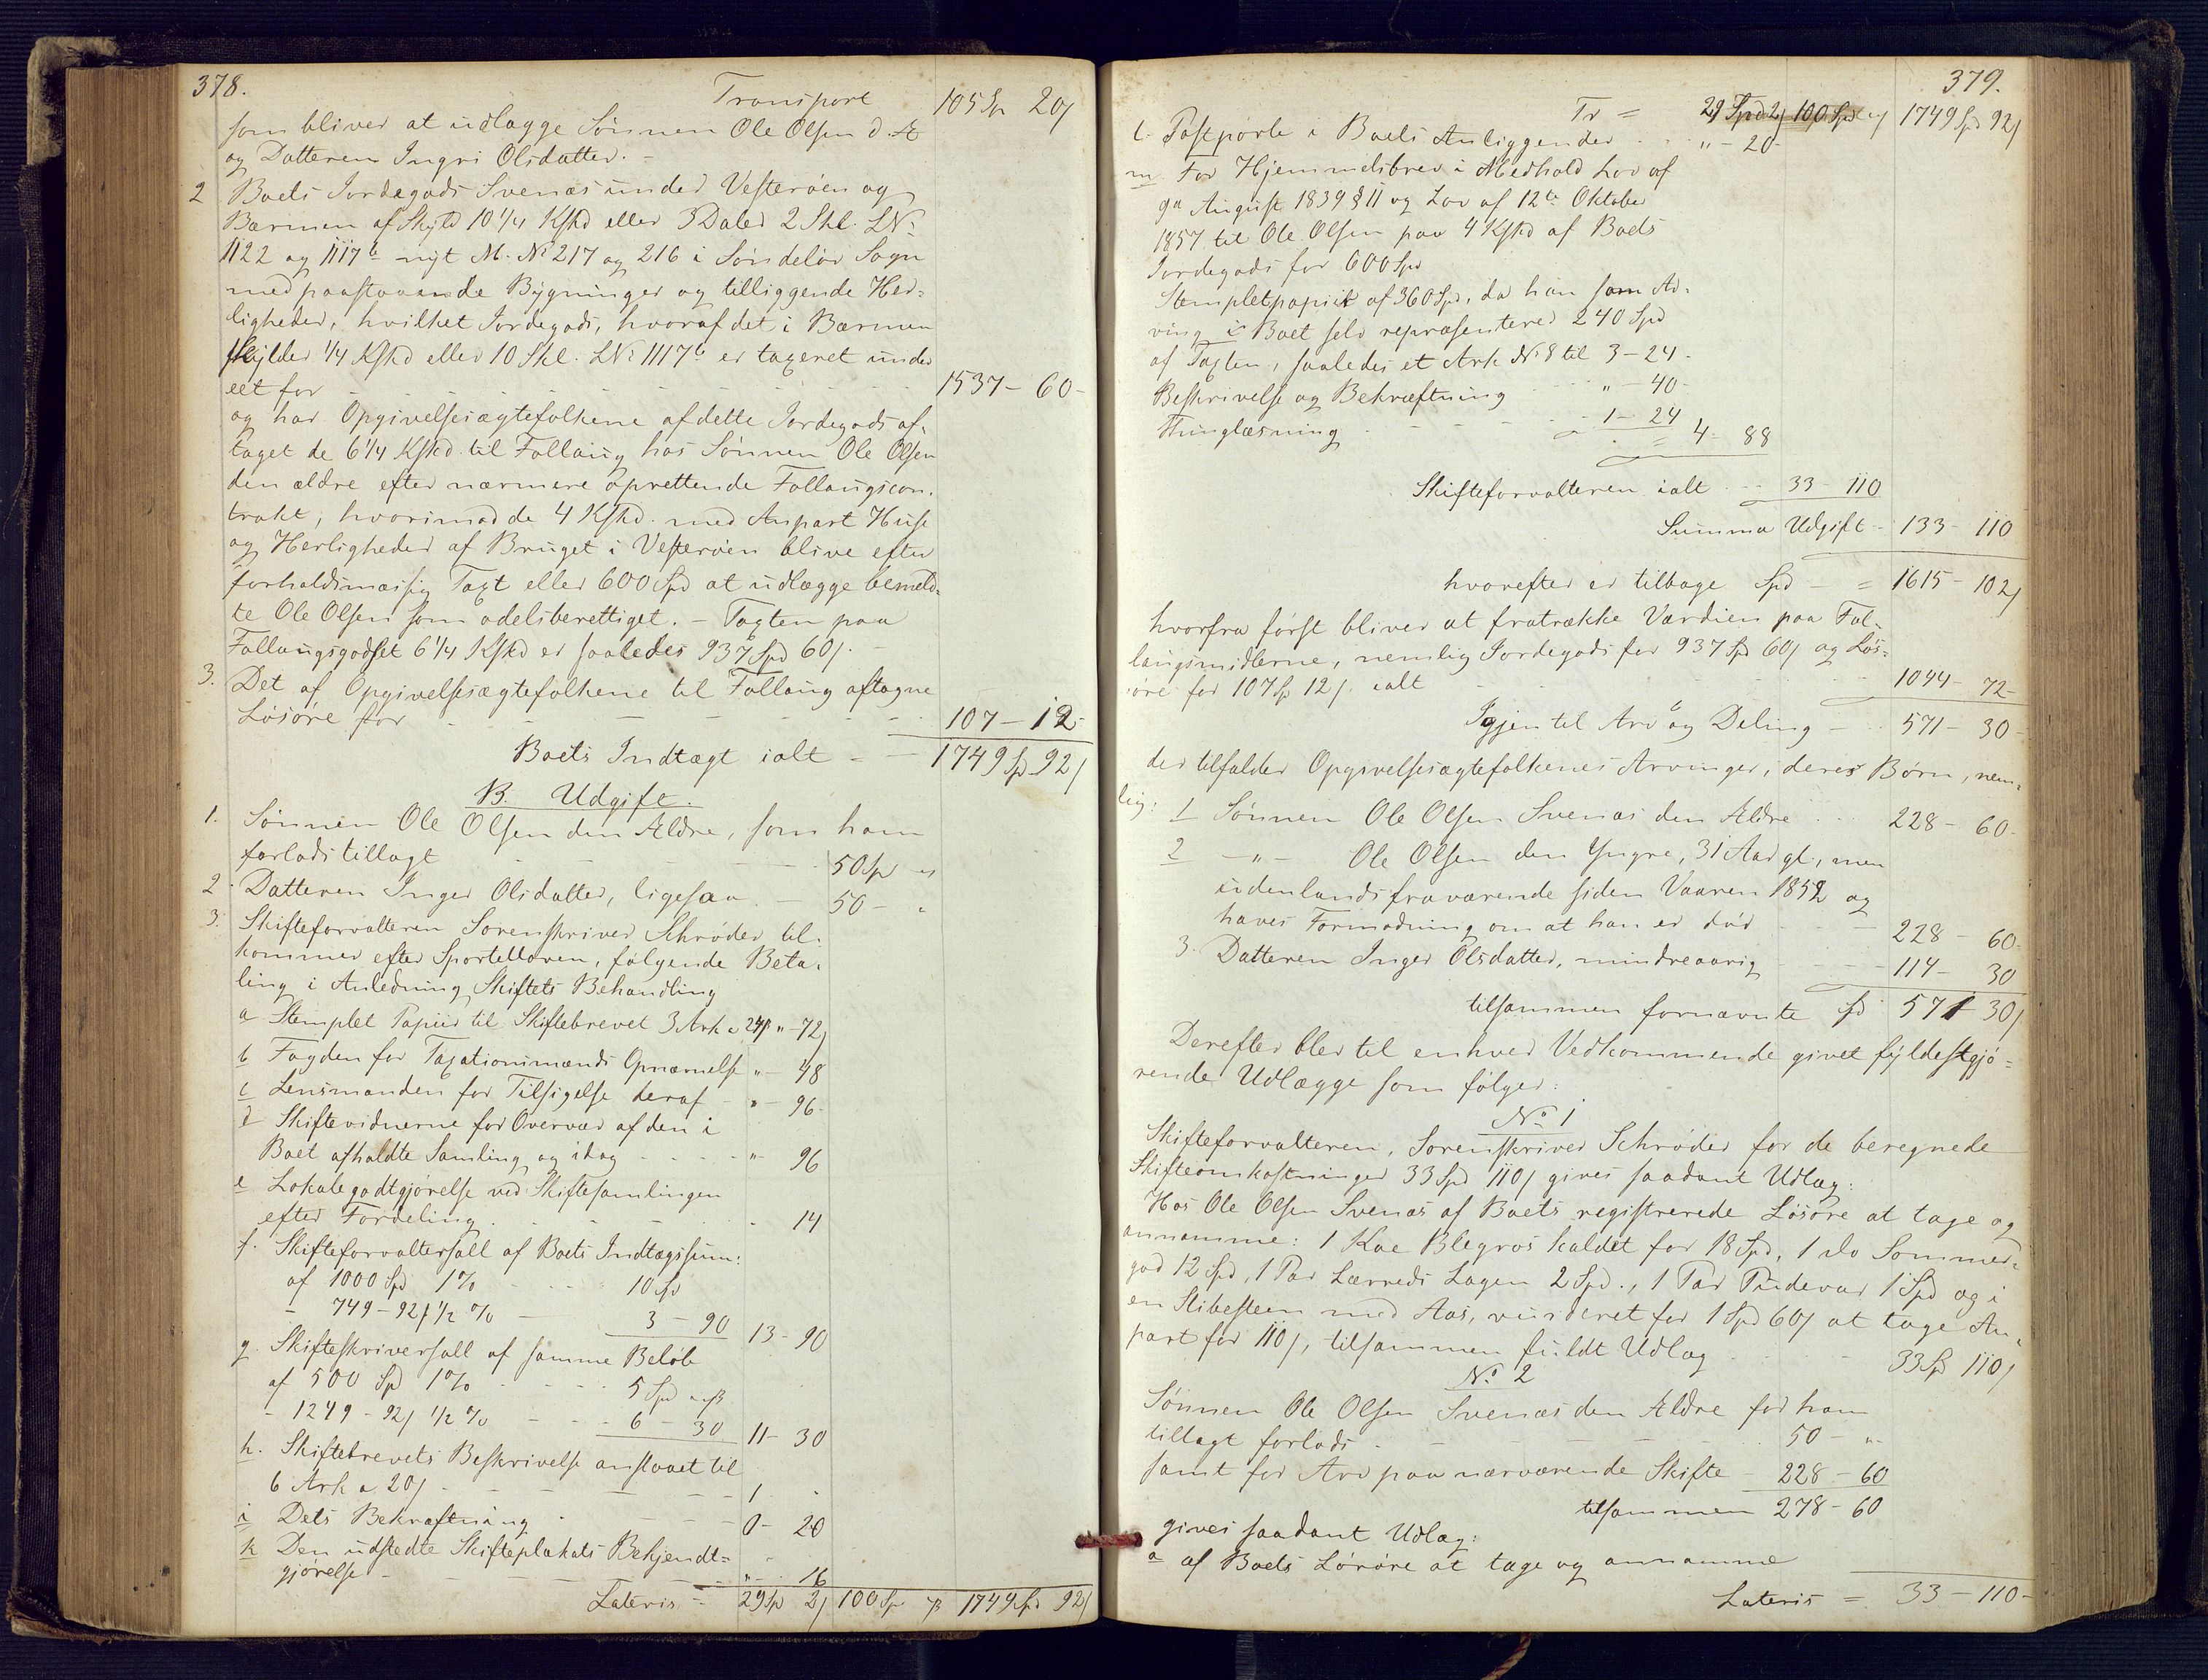 378.
Transport 105 Spd 20ß
som bliver at udlægge Sönnen Ole Olsen d. Æ
og Datteren Ingri Olsdatter. –
2 Boets Jordegods Svenæs under Vesterøen og
Bærmen af Skyld 10 1/4 Kskd eller 3 Daler 2 Skl. LNr
1122 og 1117b nyt M. Nr 217 og 216 i Söndelöv Sogn
med paastaaende Bÿgninger og tilliggende Her-
ligheder, hvilket Jordegods, hvoraf det i Bærmen
skylder 1/4 Kskd eller 10 Skl. LNr 1117b er taxeret under
eet for 1537 – 60 –
og har Opgivelsesægtefolkene af dette Jordegods af-
taget de 6 1/4 Kskd til Follaug hos Sönnen Ole Olsen
den ældre efter nærmere oprettende Follaugscon-
trakt, hvorimod de 4 Kskd. med Anpart Huse
og Herligheder af Bruget i Vesterøen blive efter
forholdsmæssig Taxt eller 600 Spd at udlægge bemeld-
te Ole Olsen som odelsberettiget. – Taxten paa
Follaugsgodset 6 1/4 Kskd er saaledes 937 Spd 60ß. –
3. Det af Opgivelsesægtefolkene til Follaug aftagne
Lösöre for 107 – 12 –
Boets Indtægt ialt = 1749 Spd 92ß
B. Udgift.
1. Sönnen Ole Olsen den Ældre, som ham
forlods tillagt 50 Spd "ß
2. Datteren Inger Olsdatter, ligesaa 50 – "
3. Skifteforvalteren Sorenskriver Schrøder til-
kommer efter Sportelloven, følgende Beta-
ling i Anledning Skiftets Behandling
a Stemplet Papiir til Skiftebrevet 3 Ark a 24ß " – 72ß
b Fogden for Taxationsmænds Opnævnelse " – 48
c Lensmanden for Tilsigelse deraf " – 96 –
d Skiftevidnerne for Overvær af den i
Boet afholdte Samling og idag " – 96
e Lokalegodtgjörelse ved Skiftesamlingen
efter Fordeling 14
f. Skifteforvaltersall af Boets Indtægtssum:
af 1000 Spd 1% 10 Spd
– 749 – 92ß 1/2 % 3 – 90 13 – 90
g. Skifteskriversall af samme Beløb
af 500 Spd 1% 5 Spd "ß
– 1249 – 92ß 1/2 % 6 – 30 11 – 30
h. Skiftebrevets Beskrivelse anslaaet til
6 Ark a 20ß 1 "
i Dets Bekræftning 0 – 20
k Den udstedte Skifteplakats Bekjendt-
gjørelse " – 16
Lateris = 29 Spd 2ß 100 Spd "ß 1749 Spd 92ß
379.
Tr = 29 Spd 2ß 100 Spd "ß 1749 Spd 92ß
l. Postporto i Boets Anliggender " – 20 –
m For Hjemmelsbrev i Medhold Lov af
9de August 1839 § 11 og Lov af 12te Oktober
1857 til Ole Olsen paa 4 Kskd af Boets
Jordegods for 600 Spd
Stempletpapiir af 360 Spd, da han som Ar-
ving i Boet selv repræsenterer 240 Spd
af Taxten, saaledes et Ark No 8 til 3 – 24 –
Beskrivelse og Bekræftning " – 40 –
Thinglæsning 1 – 24
= 4 – 88
Skifteforvalteren ialt 33 – 110
Summa Udgift – 133 – 110
hvorefter er tilbage Spd = 1615 – 102ß
hvorfra först bliver at fratrække Værdien paa Fol-
laugsmidlerne, nemlig Jordegods for 937 Spd 60ß og Lös-
öre for 107 Sp 12ß. ialt 1044 – 72 –
Igjen til Arv og Deling – 571 – 30 –
der tilfalder Opgivelsesægtefolkenes Arvinger, deres Börn, nem-
lig: 1 Sönnen Ole Olsen Svenæs den Ældre 228 – 60 –
2 – " – Ole Olsen den Yngre, 31 Aar gl., men
udenlands fraværende siden Vaaren 1852 og
haves Formodning om at han er död 228 – 60 –
3. Datteren Inger Olsdatter, mindreaarig 114 – 30
tilsammen fornævnte Spd 571 – 30ß
Derefter blev til enhver Vedkommende givet fyldestgjö-
rende Udlægge som fölger:
No 1
Skifteforvalteren, Sorenskriver Schröder for de beregnede
Skifteomkostninger 33 Spd 110ß gives saadant Udlæg:
Hos Ole Olsen Svenæs af Boets registrerede Lösöre at tage og
annamme: 1 Koe Blegros kaldet for 18 Spd, 1 do Sommer-
god 12 Spd, 1 Par Lærreds Lagen 2 Spd., 1 Par Pudevar 1 Spd og i
en Slibesteen med Aas, vurderet for 1 Spd 60ß at tage An-
part for 110ß, tilsammen fuldt Udlæg 33 Spd 110ß
No 2
Sönnen Ole Olsen Svenæs den Ældre for ham
tillagt forlods 50 – "
samt for Arv paa nærværende Skifte 228 – 60
tilsammen 278 – 60
gives saadant Udlæg:
a af Boets Lösöre at tage og annamme
Lateris = 33 – 110 –